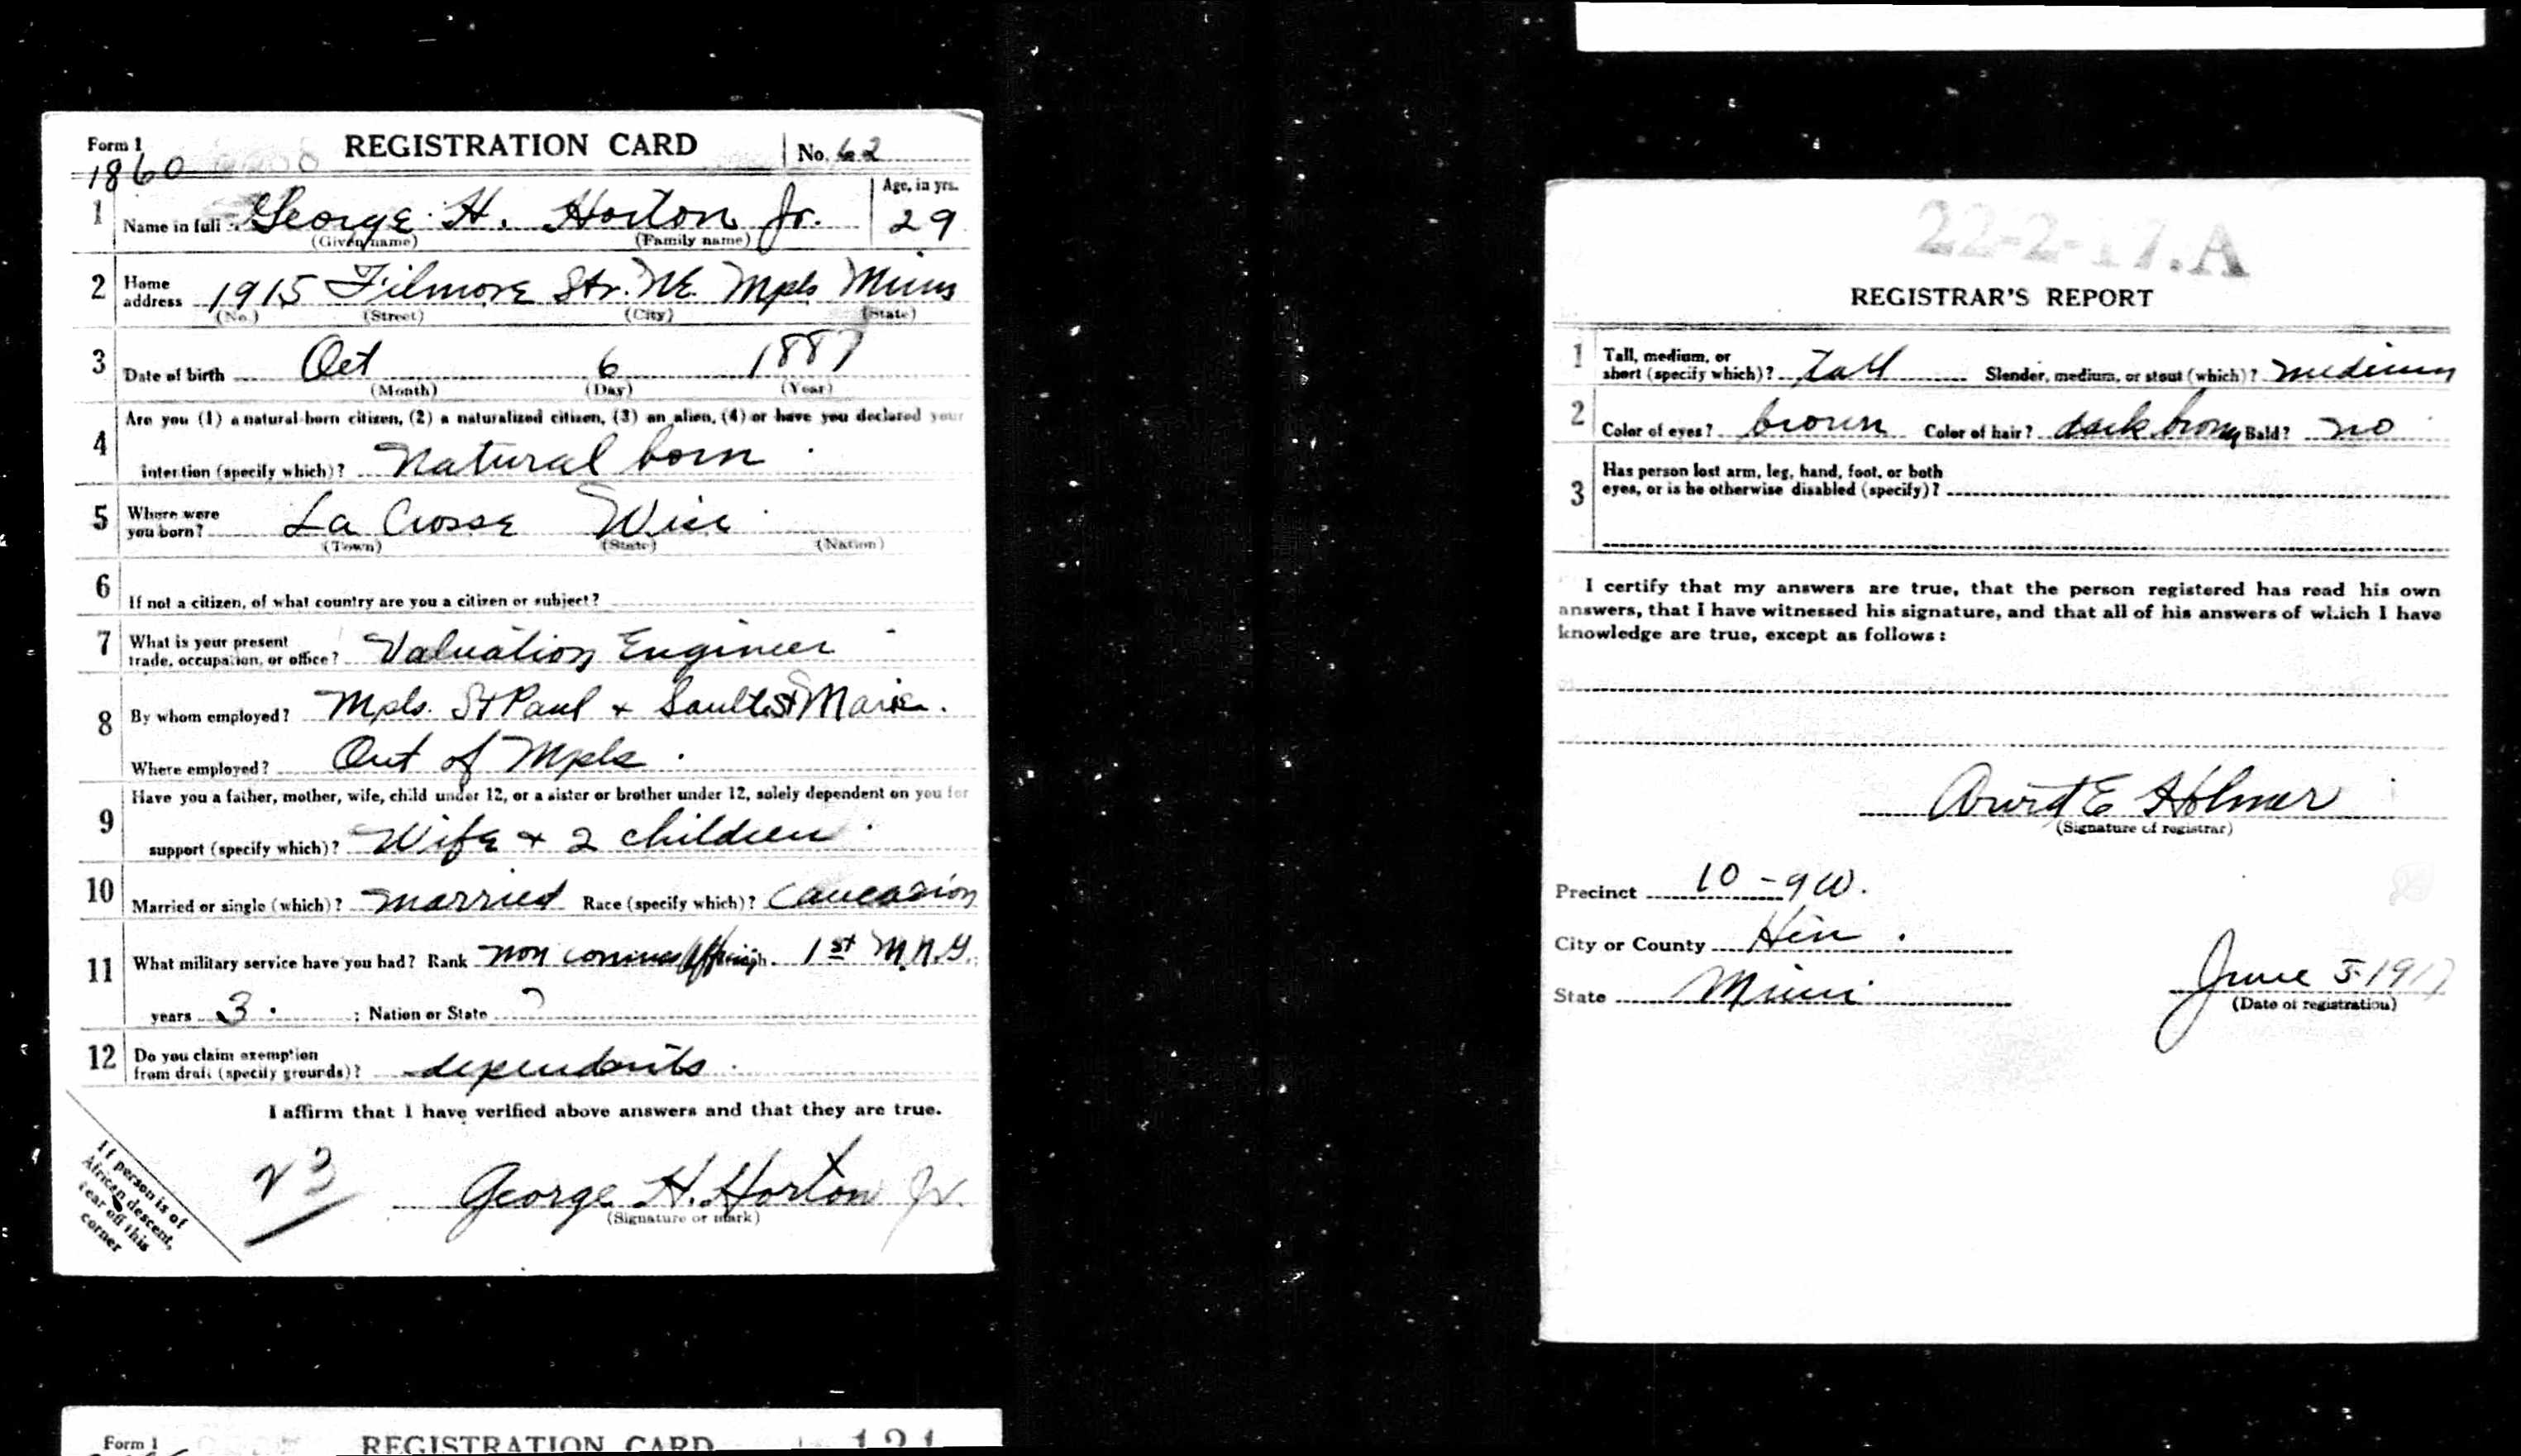 Form 1 REGISTRATION CARD No. 62
1860
1 Name in full George H. Horton Jr. Age, in yrs. 29
(Given name) (Family name)
2 Home address 1915 Filmore Str. NE. Mpls Minn
(No.) (Street) (City) (State)
3 Date of birth Oct 6 1887
(Month) (Day) (Year)
Are you (1) a natural-born citizen, (2) a naturalized citizen, (3) an alien, (4) or have you declared your
4 intention (specify which)? Natural born
5 Where were you born? La Crosse Wisc
(Town) (State) (Nation)
6 If not a citizen, of what country are you a citizen or subject?
7 What is your present trade, occupation, or office? Valuation Engineer
8 By whom employed? Mpls. St Paul + Sault St Marie.
Where employed? Out of Mpls
Have you a father, mother, wife, child under 12, or a sister or brother under 12, solely dependent on you for
9 support (specify which)? Wife + 2 children
10 Married or single (which)? married Race (specify which)? Caucasion
11 What military service have you had? Rank non 1st M.N.G.
years 3 ; Nation or State
12 Do you claim exemption from draft (specify grounds)? dependants
I affirm that I have verified above answers and that they are true.
If person is of
African descent,
tear off this
corner
George H. Horton Jr.
(Signature or mark)
Form 1 REGISTRATION CARD 121
22-2-17.A
REGISTRAR'S REPORT
1 Tall, medium, or short (specify which)? Tall Slender, medium, or stout (which)? medium
2 Color of eyes? brown Color of hair? dark brown Bald? no
3 Has person lost arm, leg, hand, foot, or both
eyes, or is he otherwise disabled (specify)?
I certify that my answers are true, that the person registered has read his own
answers, that I have witnessed his signature, and that all of his answers of which I have
knowledge are true, except as follows:
Arvid E Holmer
(Signature of registrar)
Precinct 10-9W.
City or County Hen.
State Minn
June 5-1917
(Date of registration)